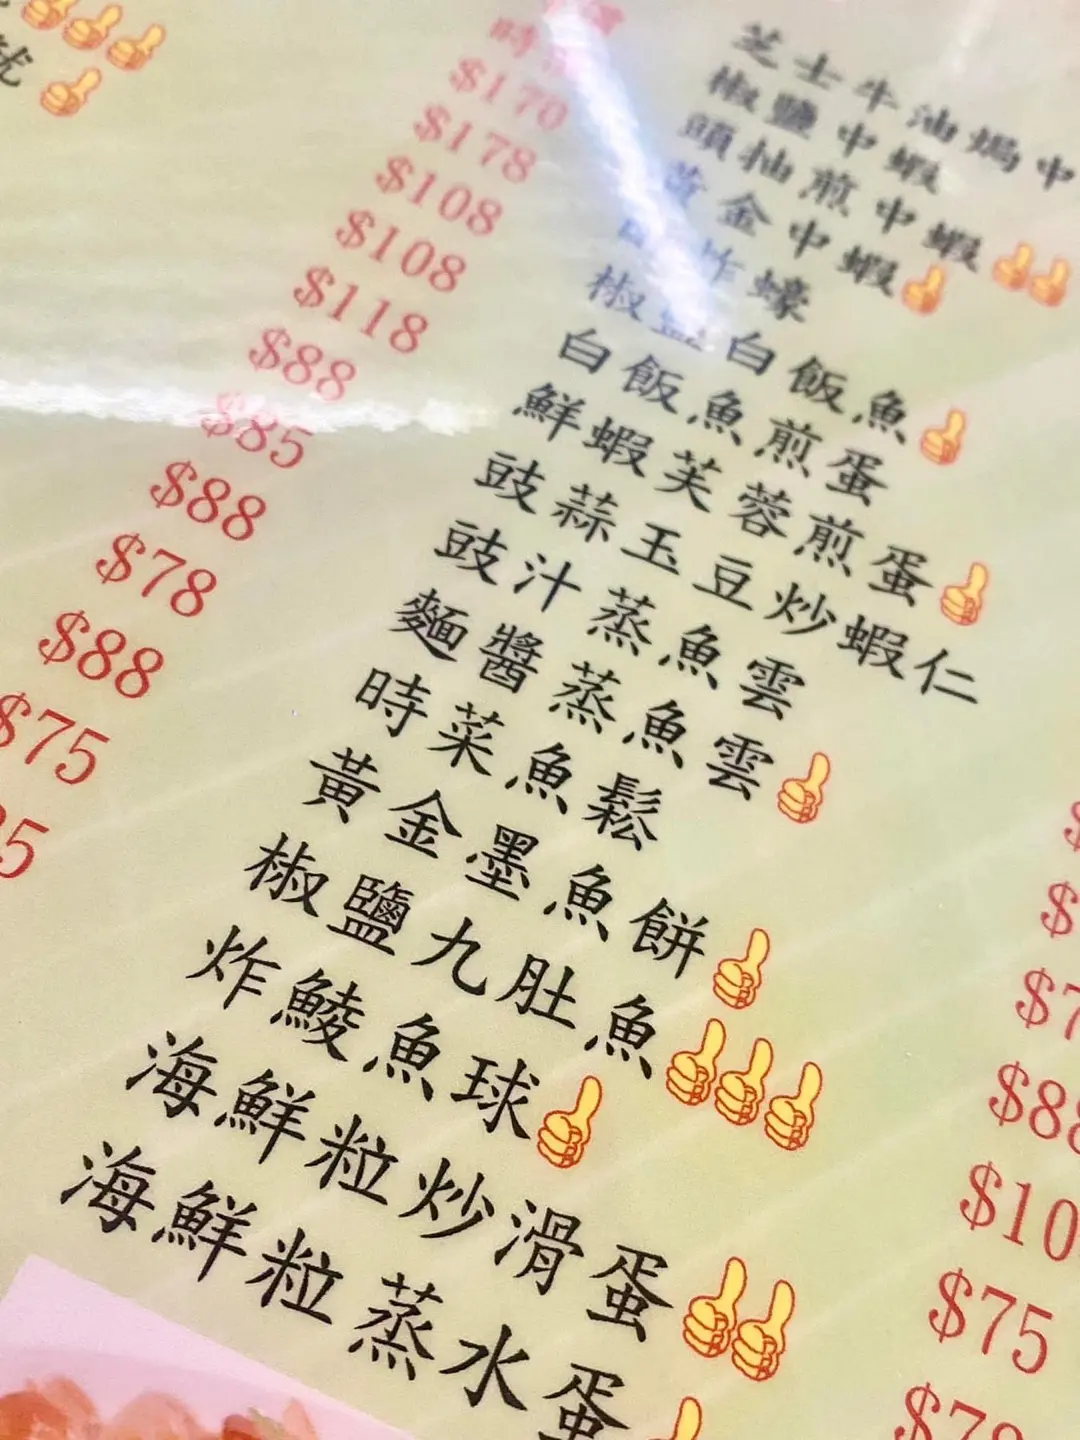 $170
$178
$108
$108
$118
$88
$85
$88
$78
$88
$75
芝士牛油焗中
椒鹽中蝦
頭抽煎中蝦
黃金中蝦
炸蠔
椒鹽白飯魚
白飯魚煎蛋
鮮蝦芙蓉煎蛋
豉蒜玉豆炒蝦仁
豉汁蒸魚雲
麵醬蒸魚雲
時菜魚鬆
黃金墨魚餅
椒鹽九肚魚
炸鯪魚球
海鮮粒炒滑蛋
海鮮粒蒸水蛋
$88
$10
$75
$78